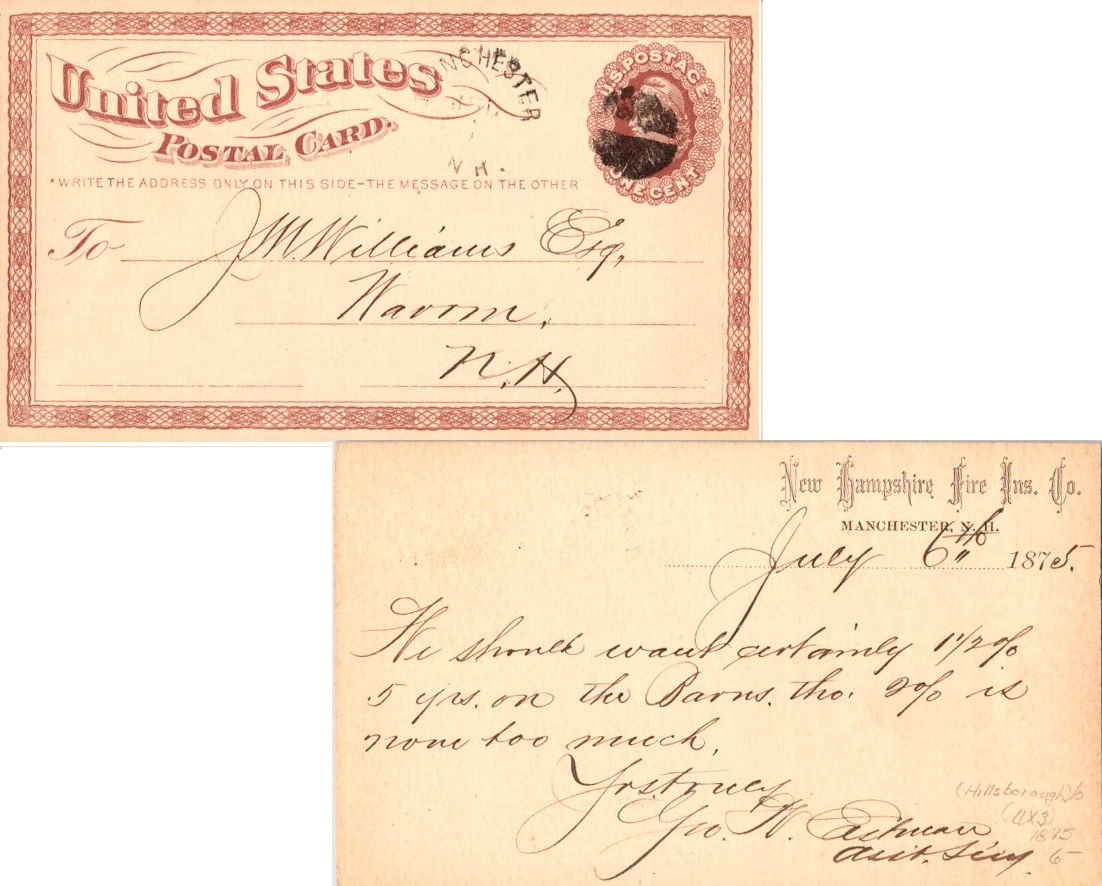 United States
Postal Card.
MANCHESTER
N.H.
U.S. POSTAGE
ONE CENT
WRITE THE ADDRESS ONLY ON THIS SIDE–THE MESSAGE ON THE OTHER
To J. W. Williams Esq,
N.H.
New Hampshire Fire Ins. Co.
MANCHESTER, N.H.
July 6th 1875.
We should want certainly 1 1/2 %
5 yrs. on the Barns. tho. 2% is
none too much.
Yrs truly
Geo. W. Eastman
Asst. Secy
(Hillsborough)
(UX3)
1875
6-